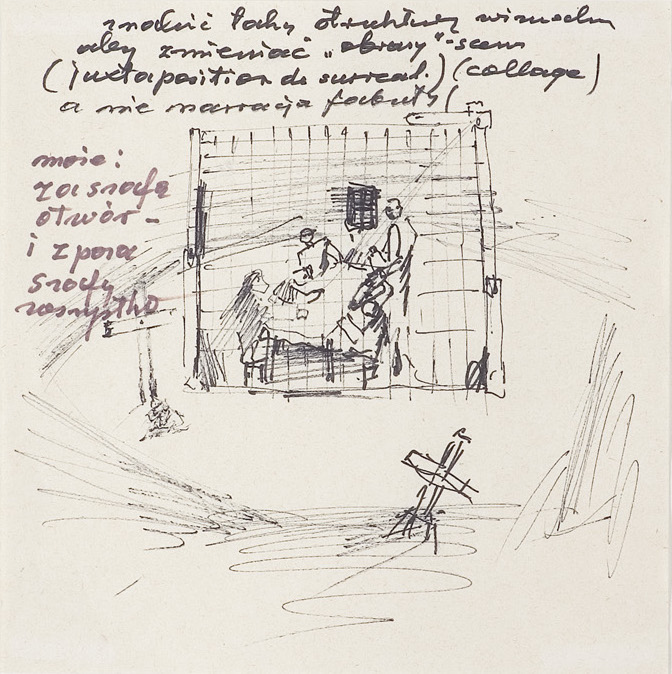 znaleźć taką strukturę
aby zmieniać „obrazy"-scen
(juxtaposition de surreal.) (collage)
a nie narracja fabuły!
może:
za szafą
otwór -
i z poza
szafy
wszystko